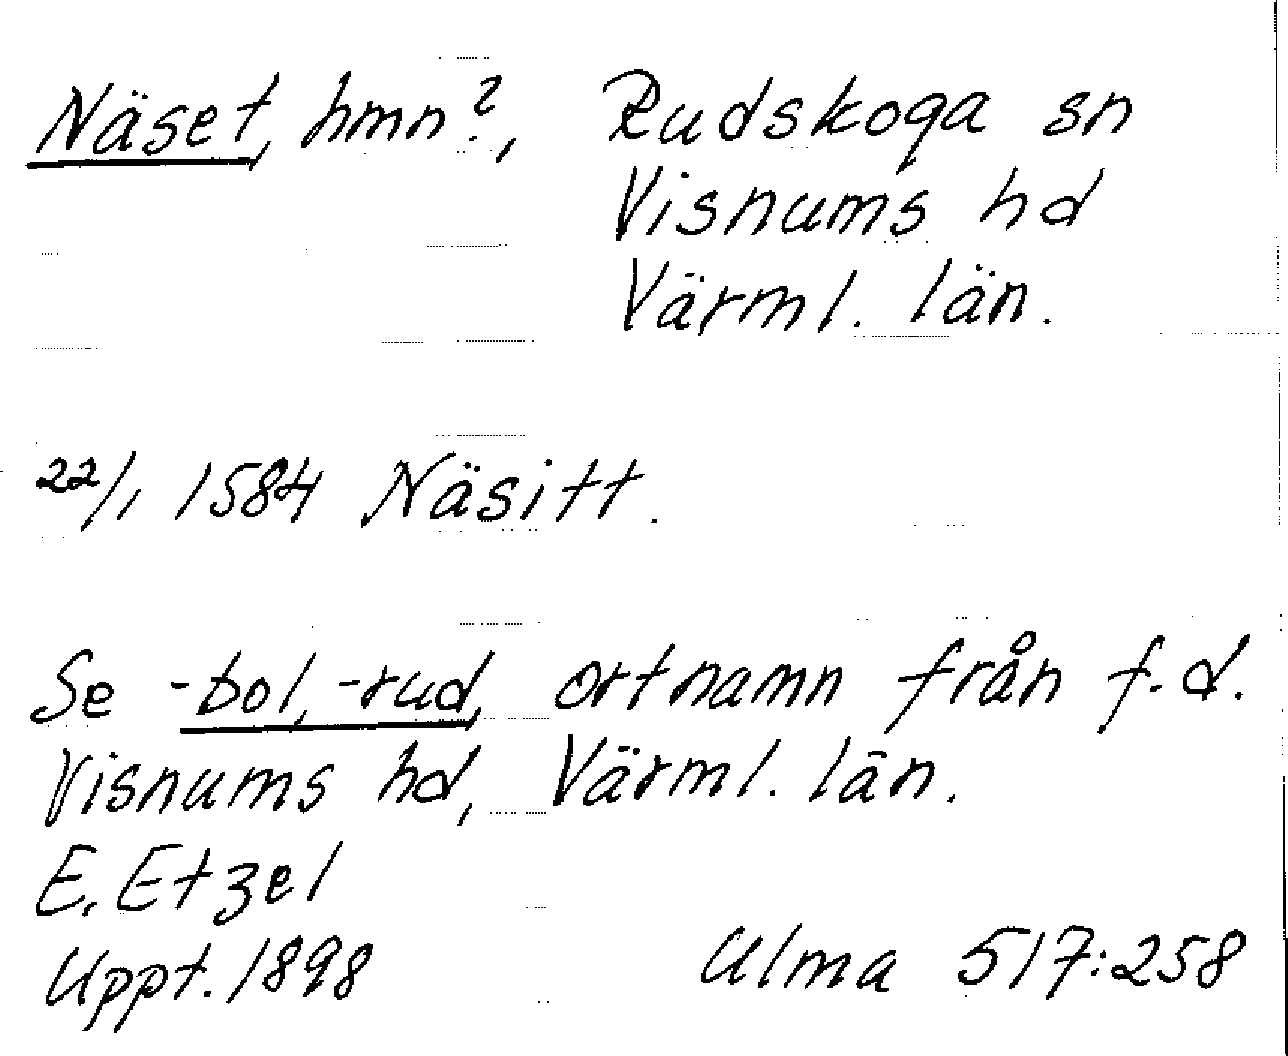 Näset, hmn?, Rudskoga sn
Visnums hd
Värml. län.
22/1 1584 Näsitt.
Se -bol, -rud, ortnamn från f.d.
Visnums hd, Värml. län.
E. Etzel
Uppt. 1898 Ulma 517:258